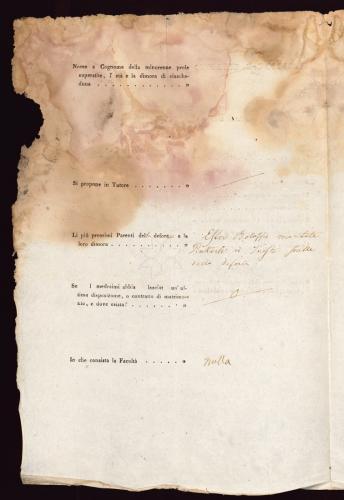 Nome e Cognome della minorenne prole
superstite, l' età e la dimora di ciasche-
duna . . . . . . . . . . . . . „
Si propone in Tutore . . . . . . . . „
Li più prossimi Parenti del defonto e la
loro dimora . . . . . . . . . . . „
in Trieste
della defonta
Se I medesimi abbia lasciat un' ul-
tima disposizione, o contratto di matrimo-
nio, e dove esista? . . . . . . . . „
In che consista la Facoltà . . . . . . „
nulla